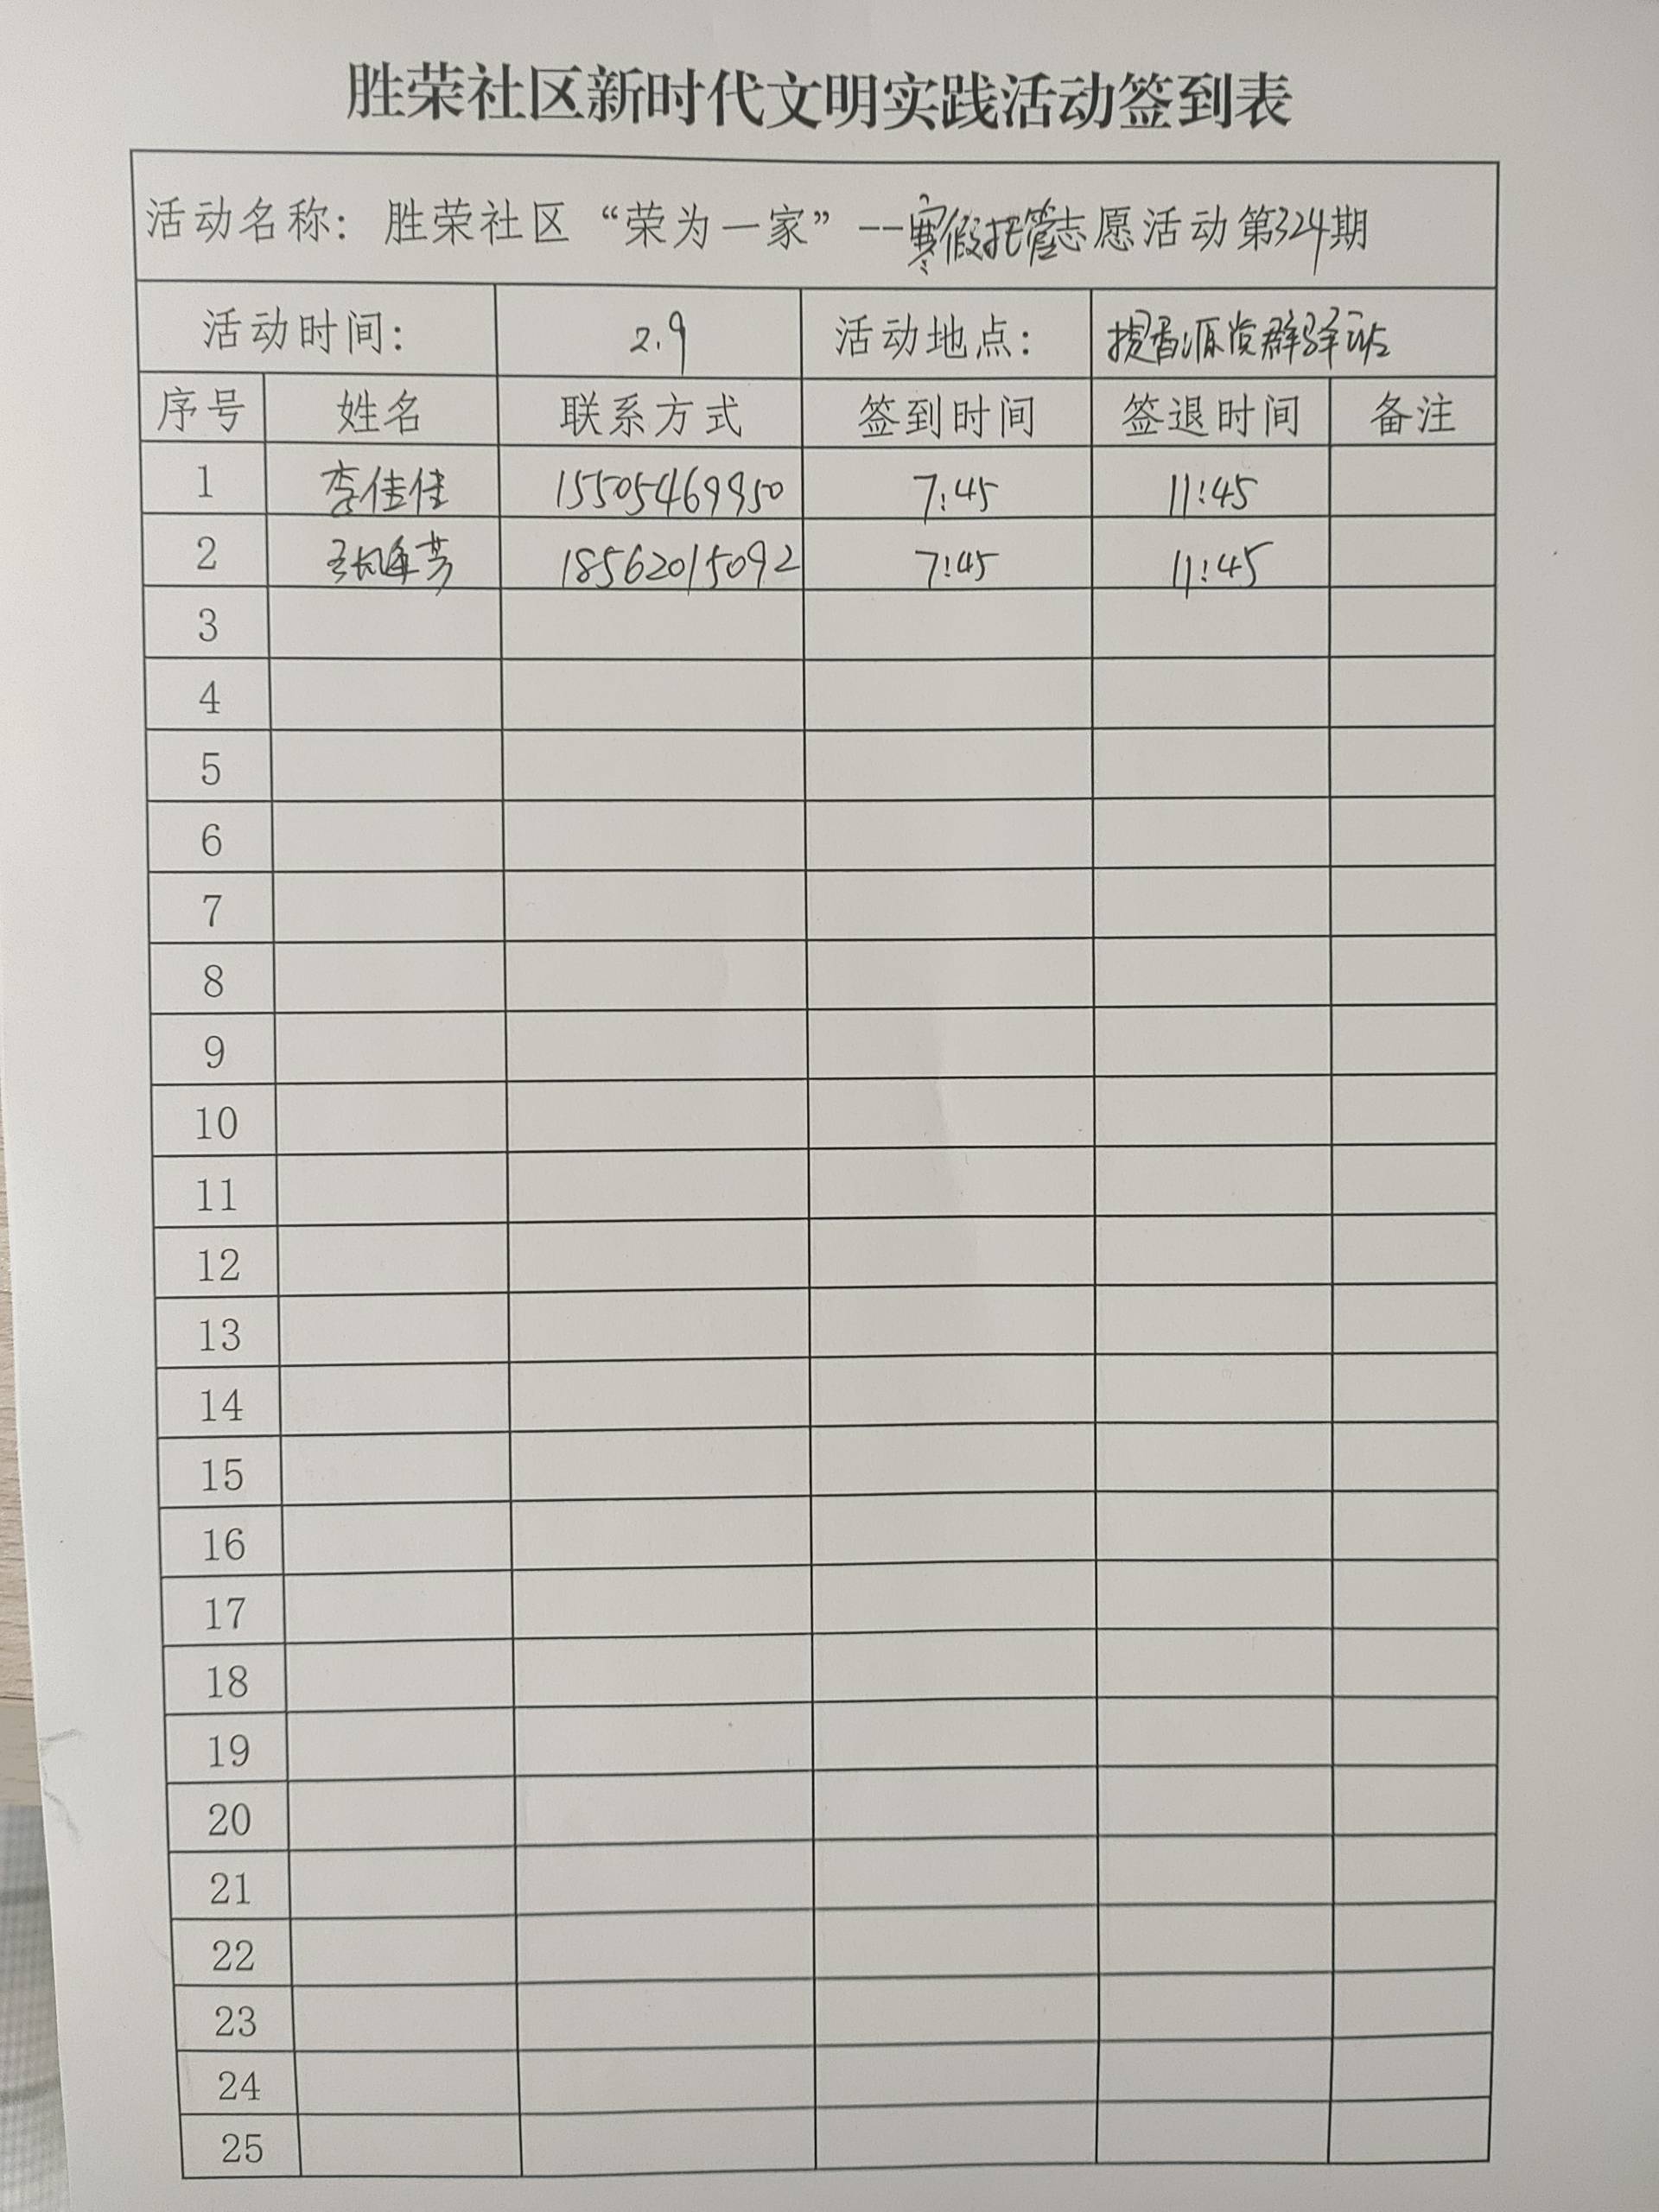 胜荣社区新时代文明实践活动签到表
活动名称：胜荣社区“荣为一家”--寒假托管志愿活动第324期
活动时间： 2.9 活动地点： 提香源党群驿站
序号 姓名 联系方式 签到时间 签退时间 备注
1 李佳佳 15505469950 7:45 11:45
2 芳 18562015092 7:45 11:45
3
4
5
6
7
8
9
10
11
12
13
14
15
16
17
18
19
20
21
22
23
24
25